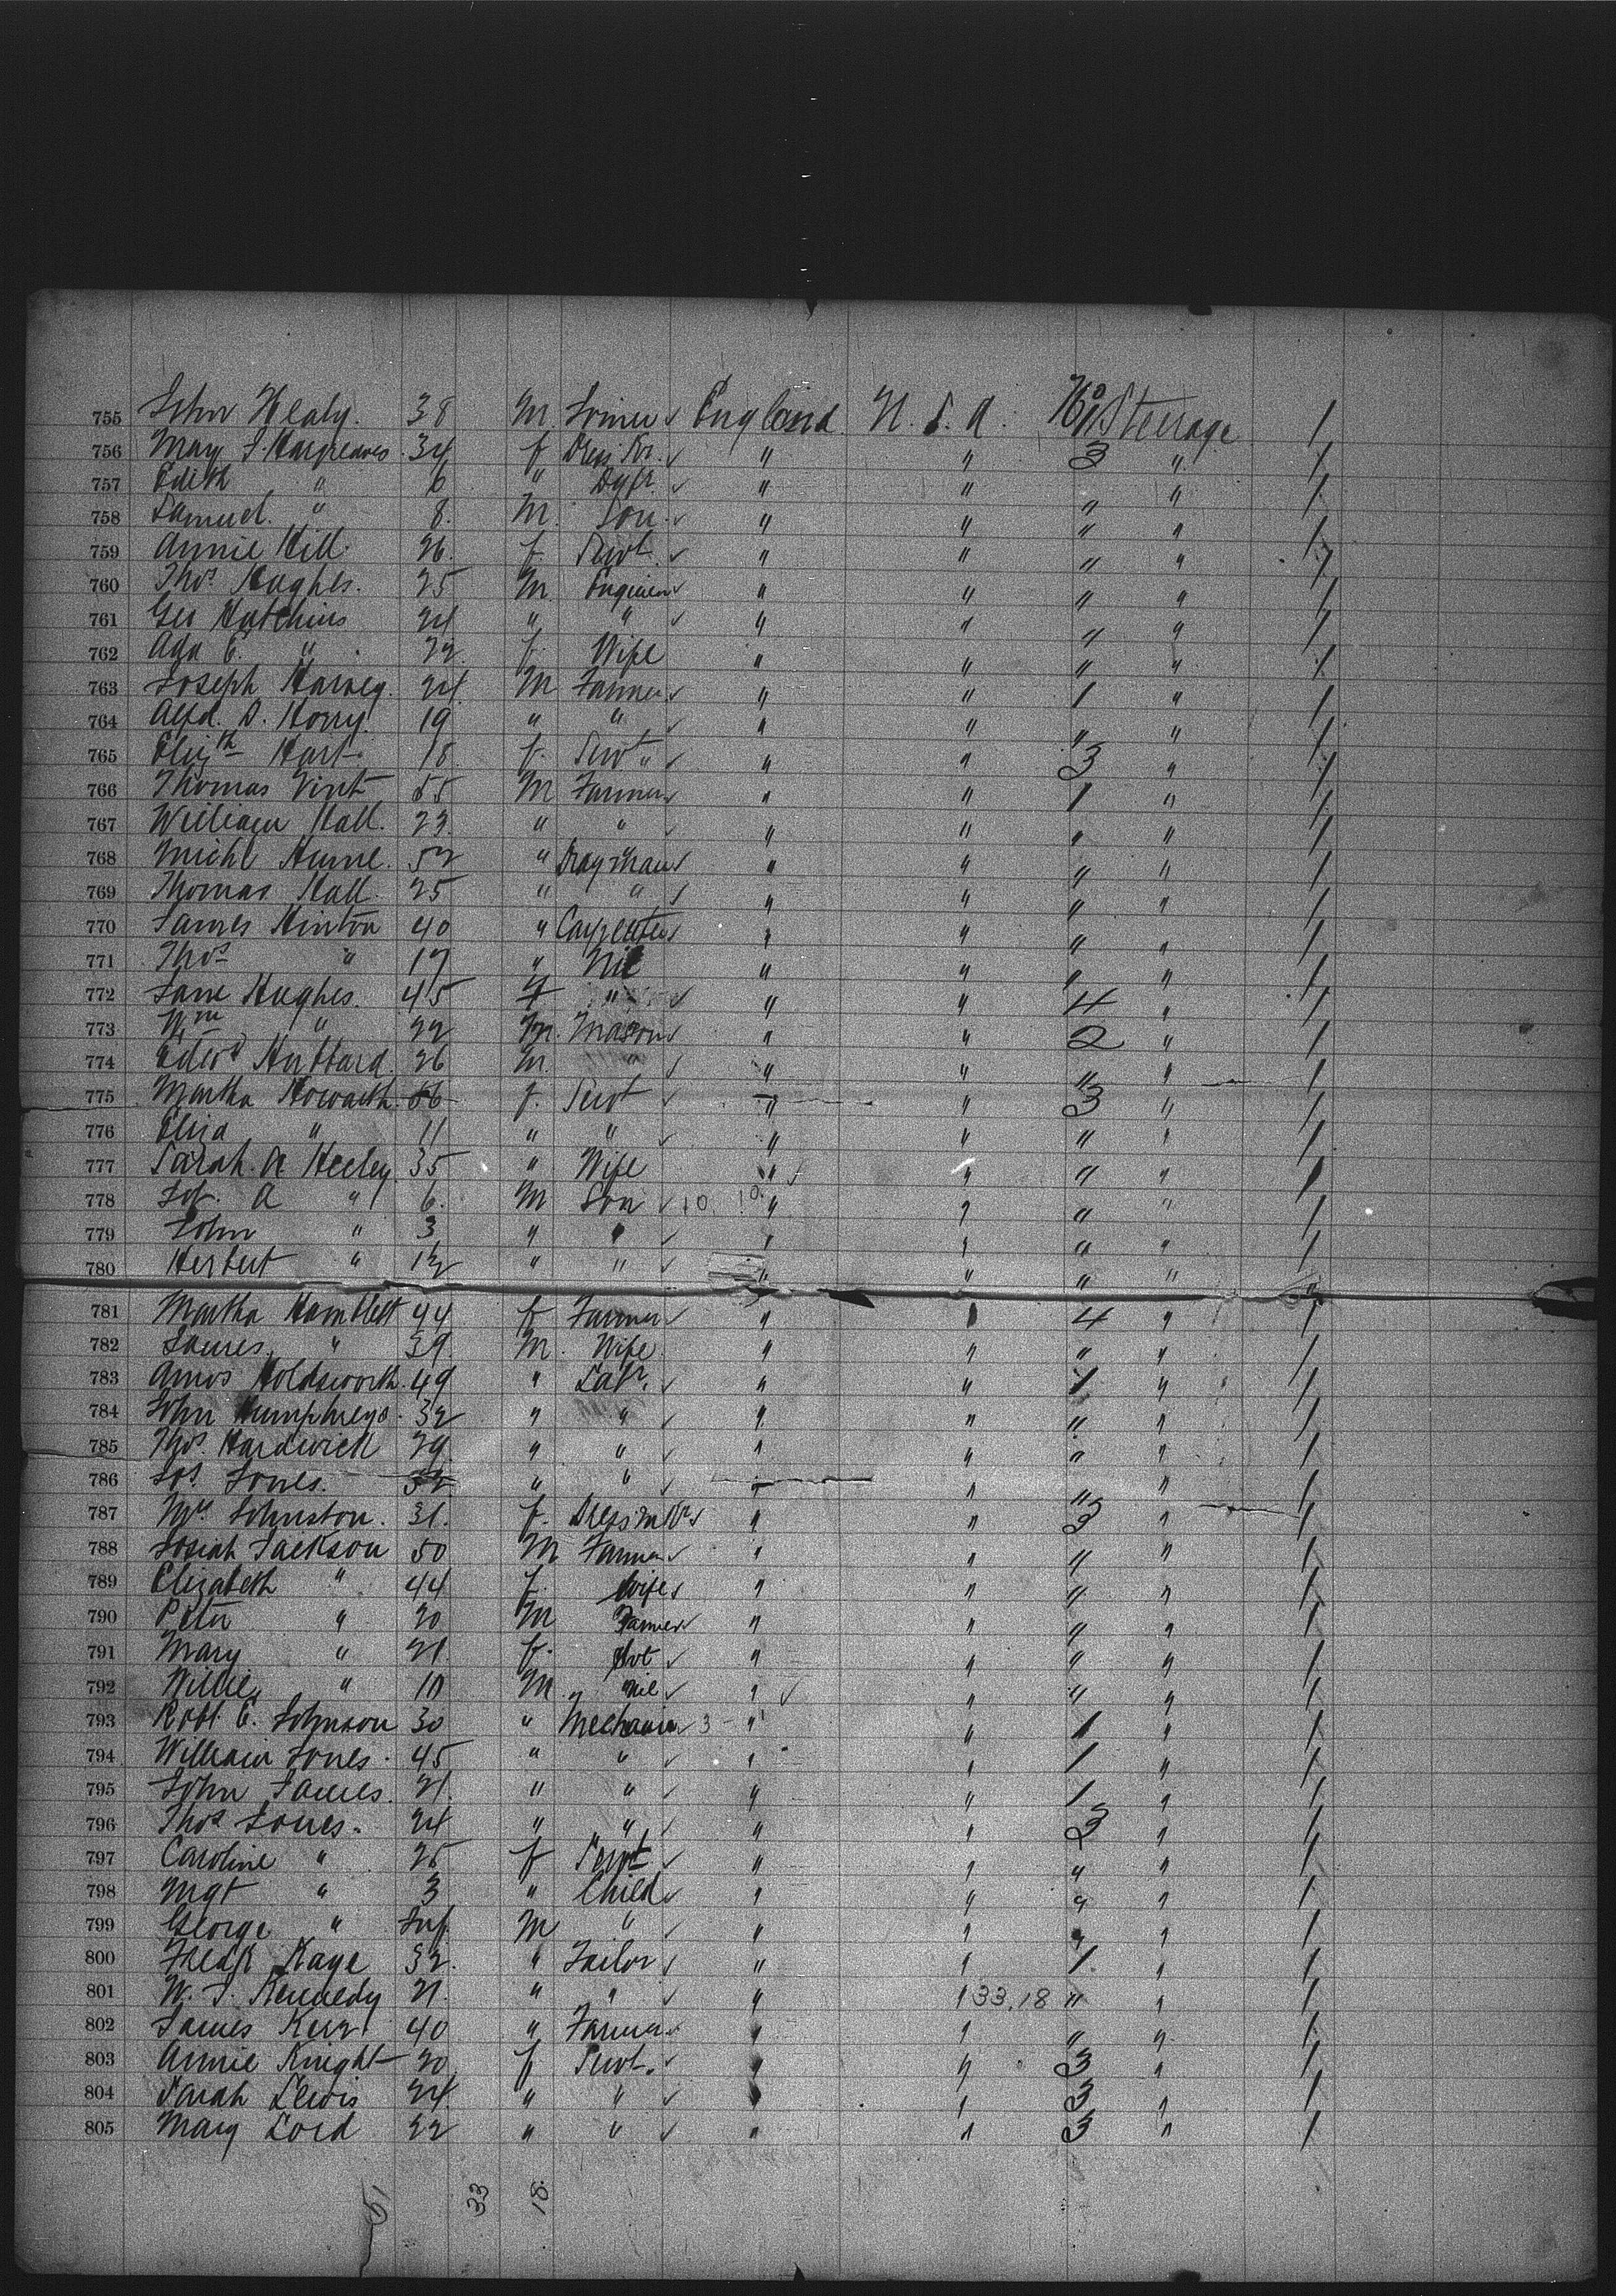 755 John Healy. 38 M. Joiner ✓ England U. S. A. No 1 Steerage /
756 Mary J. Hargreaves. 34 f Dress Kr. ✓ " " 3 " /
757 Edith " 6 " Dgtr. ✓ " " " " /
758 Samuel. " 8. M. Son. ✓ " " " " /
759 Annie Hill. 26. f. Servt. ✓ " " " " /
760 Thos. Hughes. 25 M. Engineer ✓ " " " " /
761 Geo Hutchins 24 " " ✓ " " " " /
762 Ada E. " 22. f. Wife " " " " /
763 Joseph Harvey. 24 M Farmer ✓ " " 1 " /
764 Alfd. D. Horry. 19 " " ✓ " " " " /
765 Elizth Hart. 18. f. Servt " ✓ " " 3 " /
766 Thomas Vint 55 M Farmer ✓ " " 1 " /
767 William Hall. 23. " " ✓ " " " " /
768 Michl Hume. 52 " Drayman ✓ " " " " /
769 Thomas Hall. 25 " " ✓ " " " " /
770 James Hinton 40 " Carpenter ✓ " " " " /
771 Thos " 17 " Nil " " " " /
772 Jane Hughes. 45 f " ✓ " " 4 " /
773 Wm " 22 M. Mason ✓ " " 2 " /
774 Edwd Hubbard. 26 M. " ✓ " " " " /
775 Martha Howarth. 56 f. Servt ✓ " " 3 " /
776 Eliza " 11 " " ✓ " " " " /
777 Sarah. A Heeley. 35 " Wife " ✓ " " " /
778 Jos. A " 6. M Son ✓ 10. 10. " " " " /
779 John " 3 " " ✓ " " " " /
780 Herbert " 1½ " " ✓ " " " " /
781 Martha Hamblett 44 f Farmer ✓ " " 4 " /
782 James. " 39. M. Wife. " " " " /
783 Amos Holdsworth. 49 " Labr. ✓ " " 1 " /
784 John Humphreys. 32 " " ✓ " " " " /
785 Thos. Hardwick 29. " " ✓ " " " " /
786 Jos. Jones. 52 " " ✓ " " " " /
787 Mrs Johnston. 31. f. Dressmkr ✓ " " 3 " /
788 Josiah Jackson 50 M Farmer ✓ " " " " /
789 Elizabeth " 44 f. Wife ✓ " " " " /
790 Peter " 20 M Farmer ✓ " " " " /
791 Mary " 21. f. Svt ✓ " " " " /
792 Willie, " 10 M. " nil ✓ " ✓ " " " /
793 Robt. E. Johnson 30 " Mechanic ✓ 3 - " " 1 " /
794 William Jones. 45 " " ✓ " " 1 " /
795 John James. 21. " " ✓ " " 1 " /
796 Thos Jones. 24 " " ✓ " " 3 " /
797 Caroline " 25 f Servt ✓ " " " " /
798 Mgt " 3 " Child ✓ " " " " /
799 George " Inf. M " ✓ " " " " /
800 Kaye 32. " Tailor ✓ " " 1. " /
801 W. J. Kennedy 21. " " ✓ " " 33.18 " " /
802 James Kerr 40 " Farmer ✓ " " " " /
803 Annie Knight 20 f Servt. ✓ " " 3 " /
804 Sarah Lewis 24. " " ✓ " " 3 " /
805 Mary Lord 22 " " ✓ " " 3 " /
51 33 18.